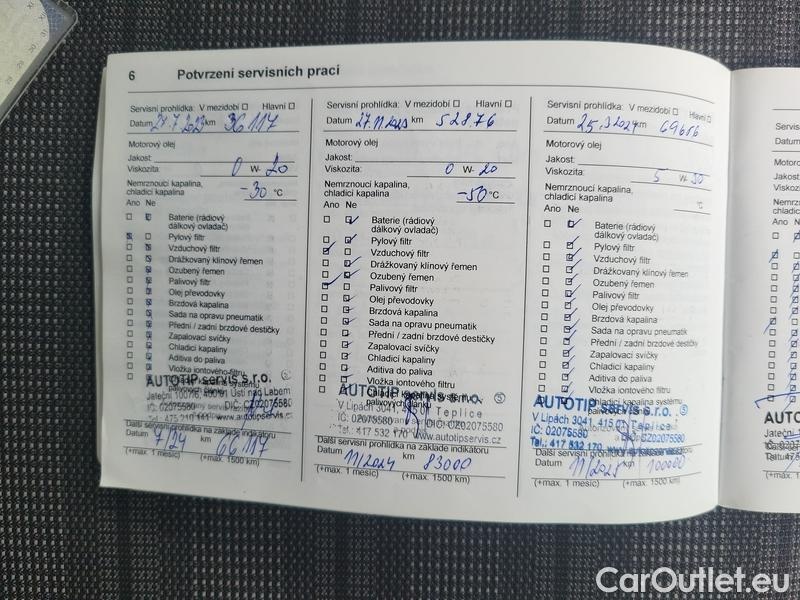 6 Potvrzení servisních prací
Servisní prohlídka: V mezidobí Hlavní
Datum 28.7.2023 km 36117
Motorový olej
Jakost:
Viskozita: 0 W- 20
Nemrznoucí kapalina,
chladicí kapalina -30 °C
Ano Ne
Baterie (rádiový
dálkový ovladač)
Pylový filtr
Vzduchový filtr
Drážkovaný klínový řemen
Ozubený řemen
Palivový filtr
Olej převodovky
Brzdová kapalina
Sada na opravu pneumatik
Přední / zadní brzdové destičky
Zapalovací svíčky
Chladicí kapaliny
Aditiva do paliva
Vložka iontového filtru
AUTOTIP servis s.r.o.
IČ: 02075580
Další servisní prohlídka na základě indikátoru
Datum 7/24 km 66117
(+max. 1 měsíc) (+max. 1500 km)
Servisní prohlídka: V mezidobí Hlavní
Datum 27.11.2023 km 52876
Motorový olej
Jakost:
Viskozita: 0 W- 20
Nemrznoucí kapalina,
chladicí kapalina -50 °C
Ano Ne
Baterie (rádiový
dálkový ovladač)
Pylový filtr
Vzduchový filtr
Drážkovaný klínový řemen
Ozubený řemen
Palivový filtr
Olej převodovky
Brzdová kapalina
Sada na opravu pneumatik
Přední / zadní brzdové destičky
Zapalovací svíčky
Chladicí kapaliny
Aditiva do paliva
Vložka iontového filtru
AUTOTIP servis s.r.o.
V Lipách 3041, 415 Teplice
IČ: 02075580 DIČ: CZ02075580
Tel.: 417 532 170 www.autotipservis.cz
Další servisní prohlídka na základě indikátoru
Datum 11/2024 km 83000
(+max. 1 měsíc) (+max. 1500 km)
Servisní prohlídka: V mezidobí Hlavní
Datum 25.3.2024 km
Motorový olej
Jakost:
Viskozita: 5 W- 30
Nemrznoucí kapalina,
chladicí kapalina °C
Ano Ne
Baterie (rádiový
dálkový ovladač)
Pylový filtr
Vzduchový filtr
Drážkovaný klínový řemen
Ozubený řemen
Palivový filtr
Olej převodovky
Brzdová kapalina
Sada na opravu pneumatik
Přední / zadní brzdové destičky
Zapalovací svíčky
Chladicí kapaliny
Aditiva do paliva
Vložka iontového filtru
AUTOTIP servis s.r.o.
V Lipách 3041, 415 Teplice
IČ: 02075580 CZ02075580
Tel.: 417 532 170
Další servisní prohlídka na základě indikátoru
Datum km 100000
(+max. 1 měsíc) (+max. 1500 km)
CarOutlet.eu